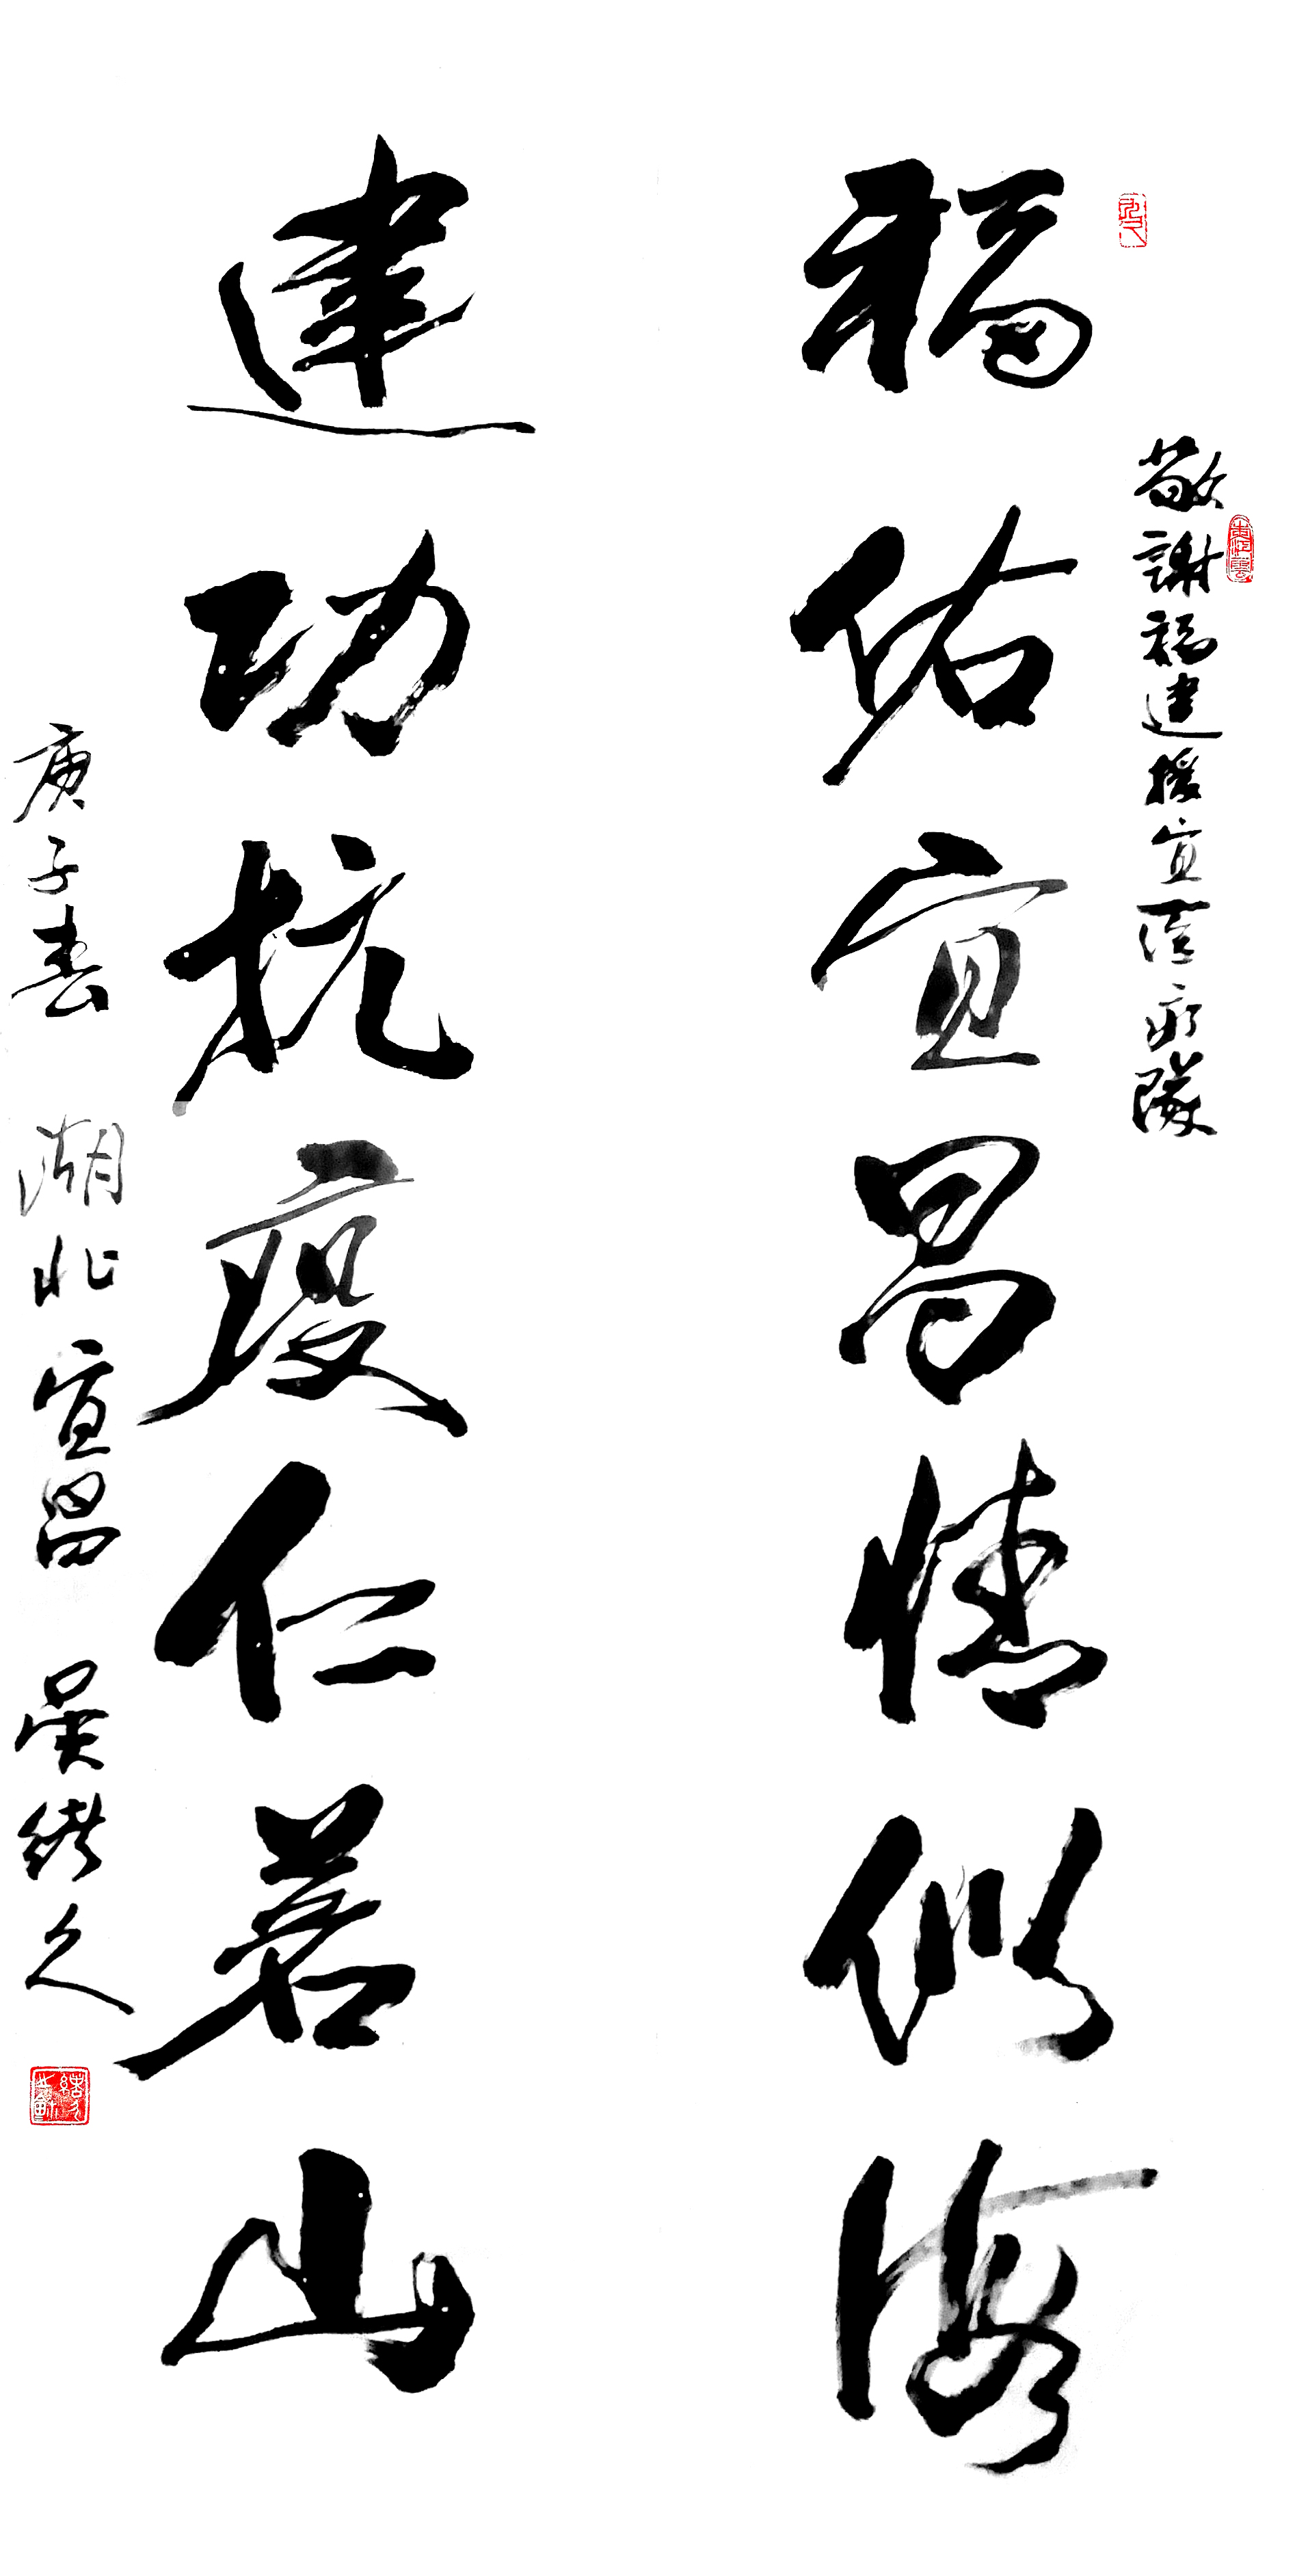 敬謝福建援宜医疗隊
福佑宜昌情似海
建功抗疫仁若山
庚子春 湖北宜昌 吴緒久